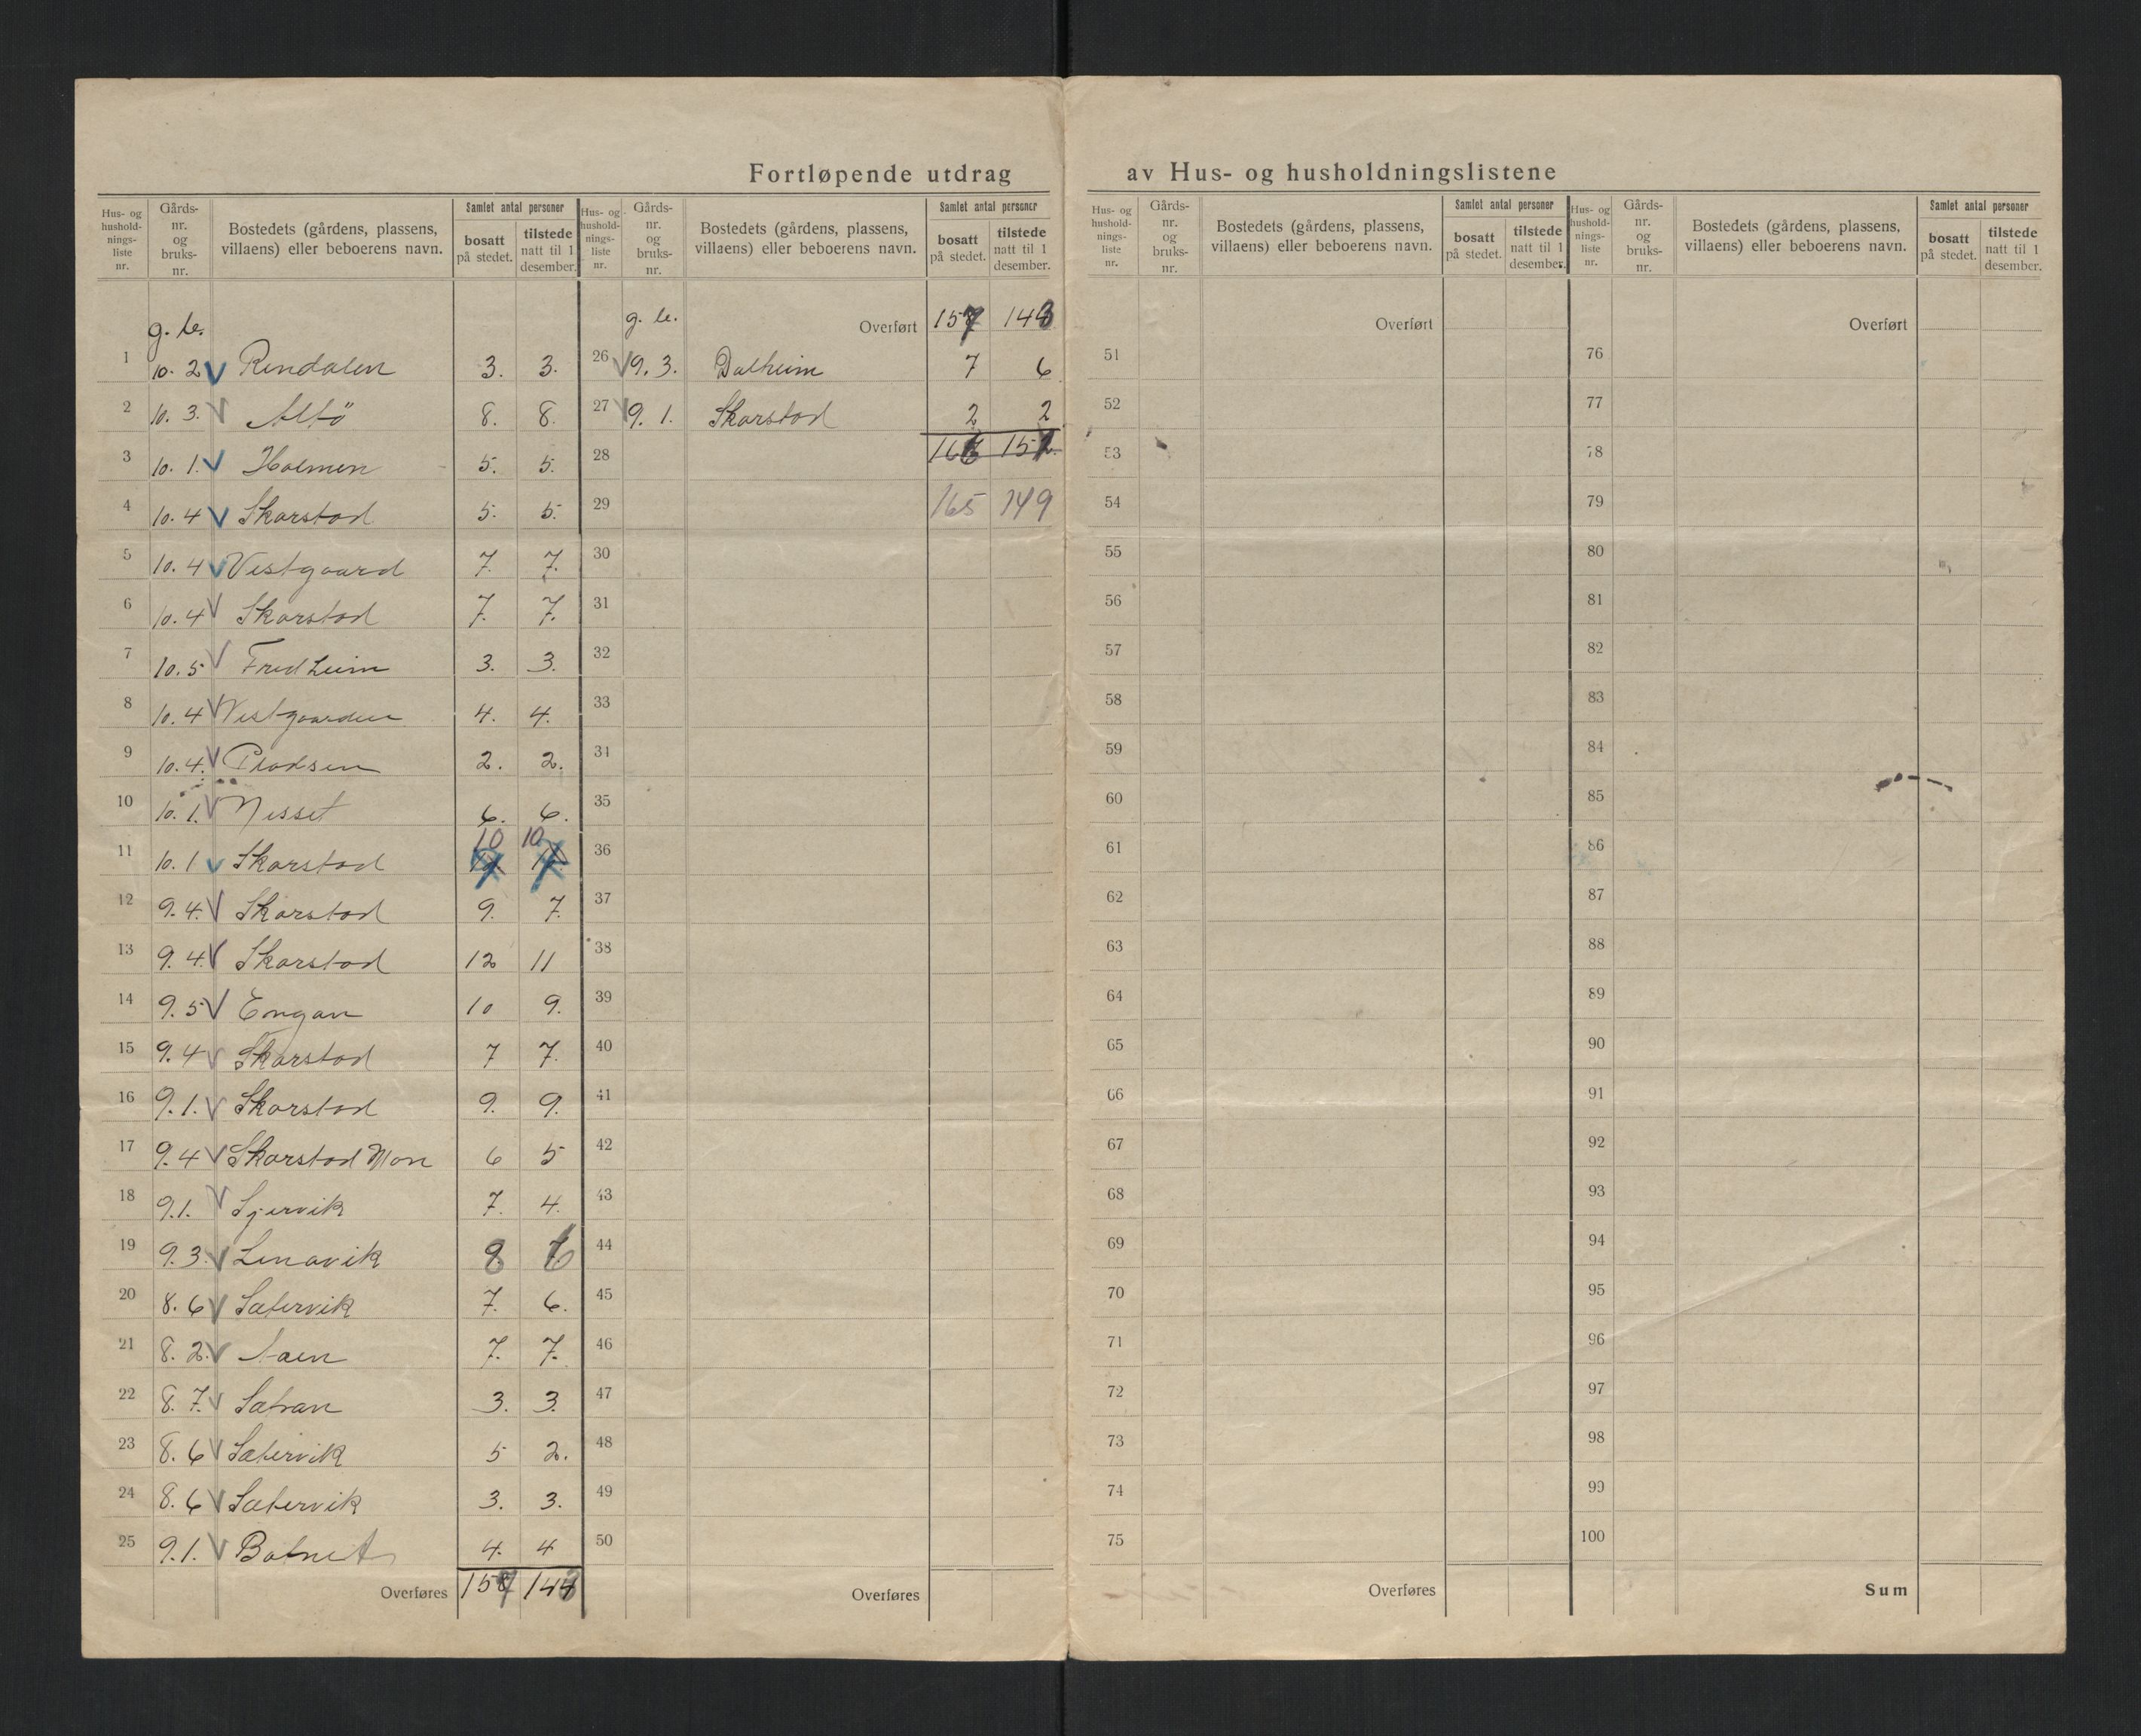 Fortløpende utdrag av Hus- og husholdningslistene
Hus- og hushold- nings- liste nr. | Gårds- nr. og bruks- nr. | Bostedets (gårdens, plassens, villaens) eller beboerens navn. | Samlet antal personer | bosatt på stedet. | tilstede natt til 1 desember.
g. br.
1 10. 2 V Rendalen 3. 3.
2 10. 3. V Altö 8. 8.
3 10. 1. V Holmen 5. 5.
4 10. 4 V Skarstad 5. 5.
5 10. 4 V Vestgaard 7. 7.
6 10. 4 V Skarstad 7. 7.
7 10. 5 V Fredheim 3. 3.
8 10. 4 V Vestgaarden 4. 4.
9 10. 4. V 2. 2.
10 10. 1. V Nesset 6. 6.
11 10. 1 V Skarstad 10 10
12 9. 4. V Skarstad 9. 7.
13 9. 4. V Skarstad 12 11
14 9. 5 V Engan 10 9.
15 9. 4 V Skarstad 7 7.
16 9. 1. V Skarstad 9. 9.
17 9. 4 V Skarstad Mon 6 5
18 9. 1. V Sjervik 7. 4.
19 9. 3. V Lenavik 8 6
20 8. 6 V Sætervik 7. 6.
21 8. 2. V 7. 7.
22 8. 7. V Sætran 3. 3.
23 8. 6 V Sætervik 5 2.
24 8. 6 V Sætervik 3. 3.
25 9. 1. V Botnet 4. 4
Overføres 157 143
Hus- og hushold- nings- liste nr. | Gårds- nr. og bruks- nr. | Bostedets (gårdens, plassens, villaens) eller beboerens navn. | Samlet antal personer | bosatt på stedet. | tilstede natt til 1 desember.
g. br. Overført 157 143
26 V 9. 3. Dalheim 7 6
27 V 9. 1. Skarstad 2 2
28 166 151
29 165 149
30
31
32
33
34
35
36
37
38
39
40
41
42
43
44
45
46
47
48
49
50
Overføres
Hus- og hushold- nings- liste nr. | Gårds- nr. og bruks- nr. | Bostedets (gårdens, plassens, villaens) eller beboerens navn. | Samlet antal personer | bosatt på stedet. | tilstede natt til 1 desember.
Overført
51
52
53
54
55
56
57
58
59
60
61
62
63
64
65
66
67
68
69
70
71
72
73
74
75
Overføres
Hus- og hushold- nings- liste nr. | Gårds- nr. og bruks- nr. | Bostedets (gårdens, plassens, villaens) eller beboerens navn. | Samlet antal personer | bosatt på stedet. | tilstede natt til 1 desember.
Overført
76
77
78
79
80
81
82
83
84
85
86
87
88
89
90
91
92
93
94
95
96
97
98
99
100
Sum